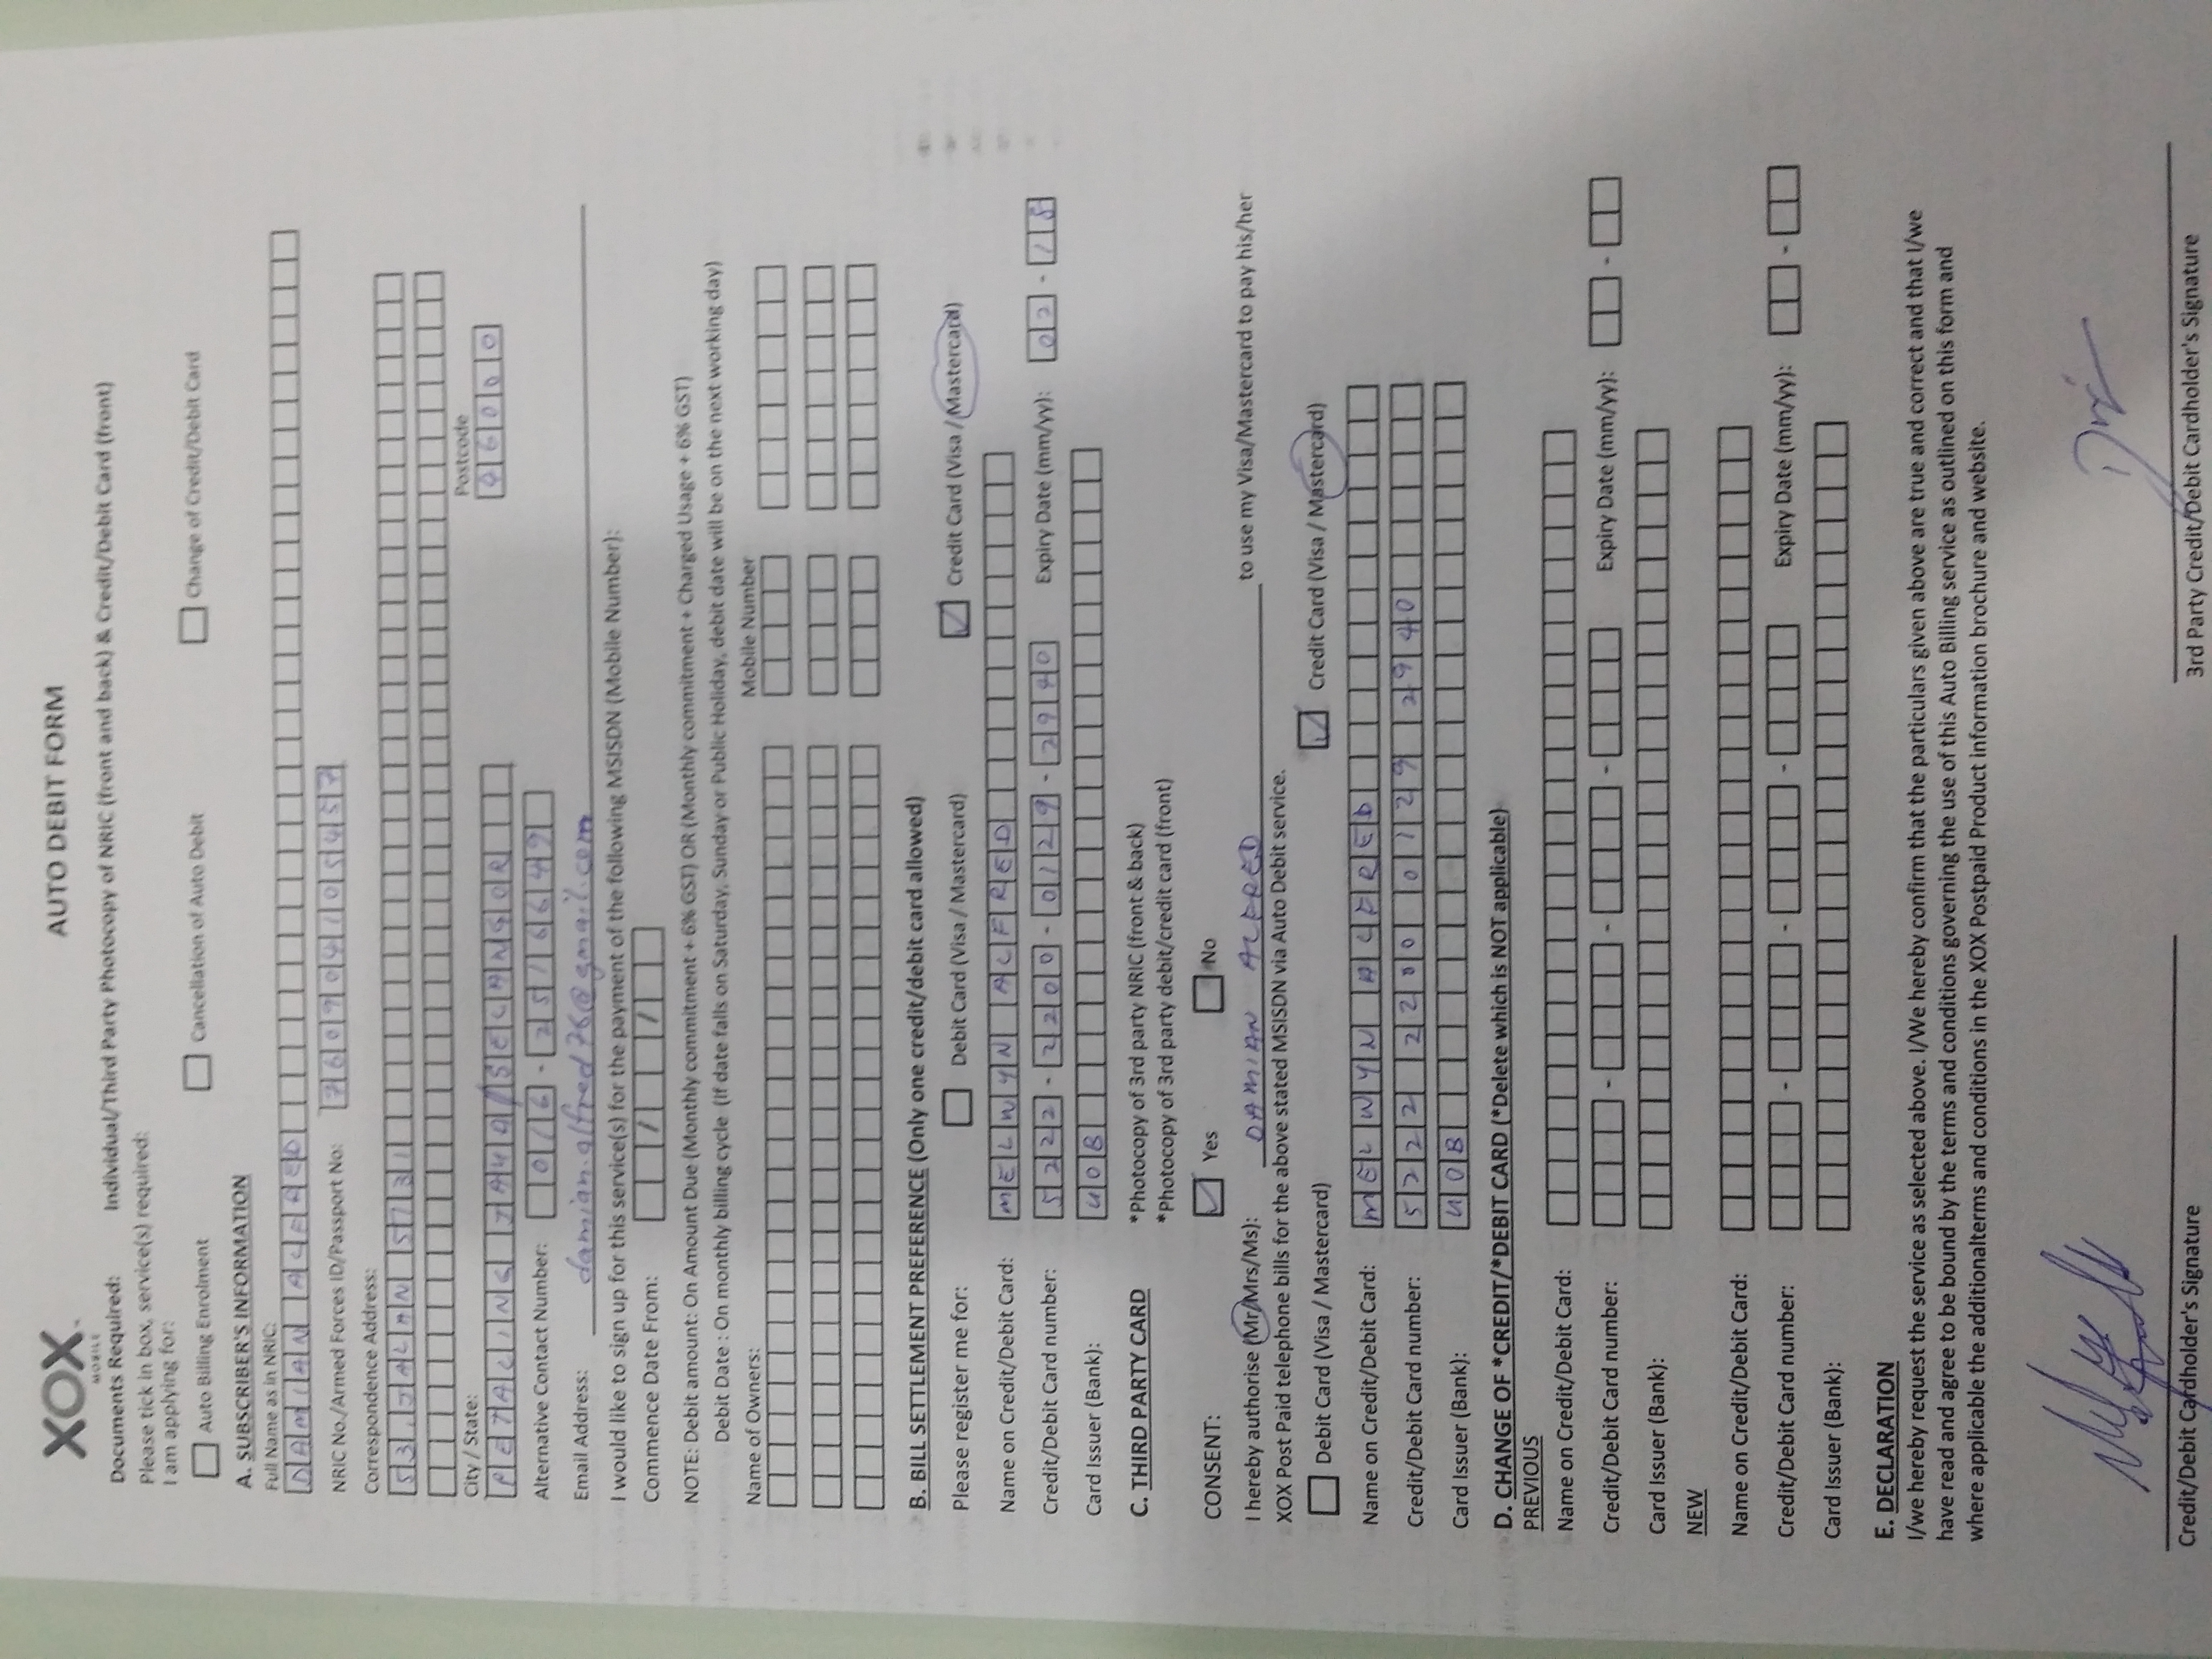 XOX
MOBILE
AUTO DEBIT FORM
Documents Required: Individual/Third Party Photocopy of NRIC (front and back) & Credit/Debit Card (front)
Please tick in box, service(s) required:
I am applying for:
Auto Billing Enrolment Cancellation of Auto Debit Change of Credit/Debit Card
A. SUBSCRIBER'S INFORMATION
Full Name as in NRIC:
DAMIAN ALFRED
NRIC No./Armed Forces ID/Passport No: 760904105457
Correspondence Address:
53, JALAN S7/31
City / State: Postcode
PETALING JAYA/SELANGOR 46000
Alternative Contact Number: 016 - 2516649
Email Address: damian.alfred76@gmail.com
I would like to sign up for this service(s) for the payment of the following MSISDN (Mobile Number):
Commence Date From: / /
NOTE: Debit amount: On Amount Due (Monthly commitment + 6% GST) OR (Monthly commitment + Charged Usage + 6% GST)
Debit Date : On monthly billing cycle (If date falls on Saturday, Sunday or Public Holiday, debit date will be on the next working day)
Name of Owners: Mobile Number
B. BILL SETTLEMENT PREFERENCE (Only one credit/debit card allowed)
Please register me for: Debit Card (Visa / Mastercard) ✓ Credit Card (Visa / Mastercard)
Name on Credit/Debit Card: MELWYN ALFRED
Credit/Debit Card number: 5222 - 2200 - 0129 - 2940 Expiry Date (mm/yy): 02 - 18
Card Issuer (Bank): UOB
C. THIRD PARTY CARD *Photocopy of 3rd party NRIC (front & back)
*Photocopy of 3rd party debit/credit card (front)
CONSENT: ✓ Yes No
I hereby authorise (Mr/Mrs/Ms): DAMIAN ALFRED to use my Visa/Mastercard to pay his/her
XOX Post Paid telephone bills for the above stated MSISDN via Auto Debit service.
Debit Card (Visa / Mastercard) ✓ Credit Card (Visa / Mastercard)
Name on Credit/Debit Card: MELWYN ALFRED
Credit/Debit Card number: 5222 2200 0129 2940
Card Issuer (Bank): UOB
D. CHANGE OF *CREDIT/*DEBIT CARD (*Delete which is NOT applicable)
PREVIOUS
Name on Credit/Debit Card:
Credit/Debit Card number: - - - Expiry Date (mm/yy): -
Card Issuer (Bank):
NEW
Name on Credit/Debit Card:
Credit/Debit Card number: - - - Expiry Date (mm/yy): -
Card Issuer (Bank):
E. DECLARATION
I/we hereby request the service as selected above. I/We hereby confirm that the particulars given above are true and correct and that I/we
have read and agree to be bound by the terms and conditions governing the use of this Auto Billing service as outlined on this form and
where applicable the additionalterms and conditions in the XOX Postpaid Product information brochure and website.
Credit/Debit Cardholder's Signature 3rd Party Credit/Debit Cardholder's Signature